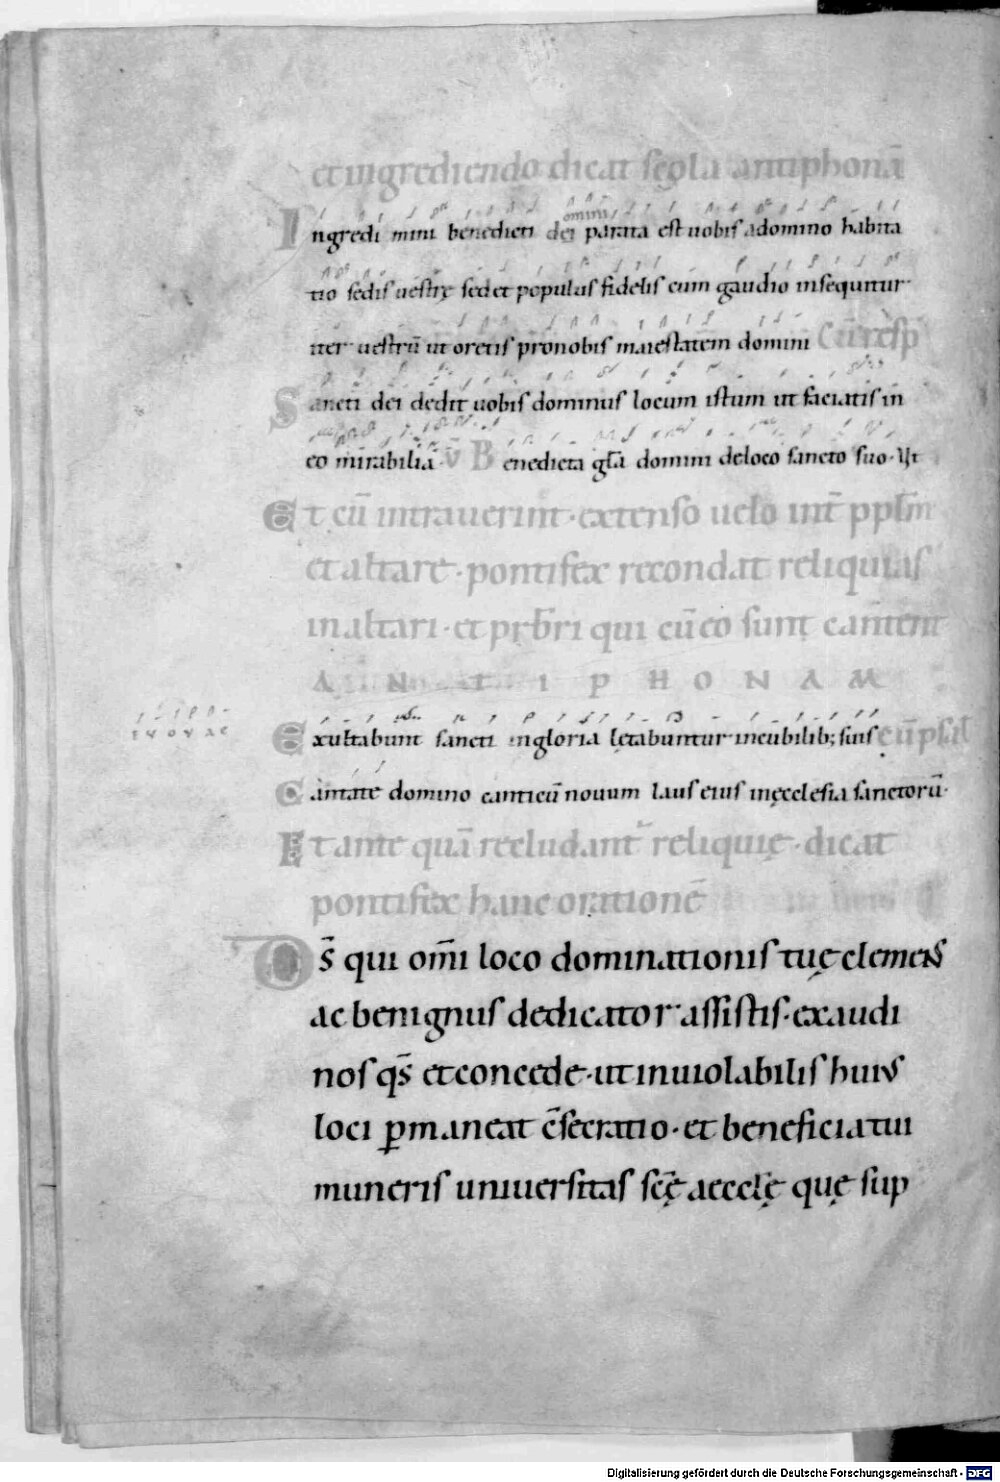 et ingrediendo dicat scola antiphonā
Ingredimini benedicti dei omini parata est uobis adomino habita
tio sedis uestrę sed et populus fidelis cum gaudio insequitur
iter uestrū ut oretis pronobis maiestatem domini Cū resp̄
Sancti dei dedit uobis dominus locum istum ut faciatis in
eo mirabilia v̄ Benedicta gl̄a domini deloco sancto suo· Ut
Et cū intrauerint· extenso uelo int̄ ppl̄m
et altare· pontifex recondat reliquias
in altari· et prb̄ri qui cū eo sunt canent
ANTIPHONAM
Exultabunt sancti ingloria lętabuntur incubilib; suis cū psal
EVOVAE
Cantate domino canticū nouum laus eius inęcclesia sanctorū·
Et ante quā recludant᷑ reliquię· dicat
pontifex hanc orationē
Ds̄ qui om̄i loco dominationis tuę clemens
ac benignus dedicator assistis· exaudi
nos qs̄ et concede· ut inuiolabilis huius
loci ꝑmaneat c̄secratio· et beneficia tui
muneris uniuersitas sc̄ę aecclę quę sup
Digitalisierung gefördert durch die Deutsche Forschungsgemeinschaft - DFG